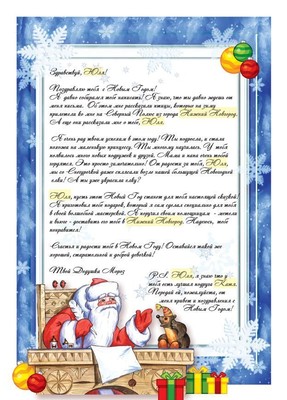 Здравствуй, Юля!
Поздравляю тебя с Новым Годом!
Я давно собирался тебе написать! Я знаю, что ты давно ждешь от
меня письма. Обо мне рассказали птицы, которые на зиму
прилетели ко мне на Северный Полюс из города Нижний Новгород.
А еще они рассказали мне о тебе, Юля.
Я очень рад твоим успехам в этом году! Ты подросла, и стала
похожа на маленькую принцессу. Ты многому научилась. У тебя
появилось много новых подружек и друзей. Мама и папа очень тобой
гордятся. Это просто замечательно! От радости за тебя, Юля,
мы со Снегурочкой даже сплясали возле нашей большущей Новогодней
елки! А ты уже украсила елку?
Юля, пусть этот Новый Год станет для тебя настоящей сказкой!
Я приготовил тебе подарок, который я сам сделал специально для тебя
в своей волшебной мастерской. Я поручил своим помощницам - метели
и вьюге - доставить его тебе в Нижний Новгород. Надеюсь, тебе
понравится!
Счастья и радости тебе в Новом Году! Оставайся такой же
хорошей, старательной и доброй девочкой!
Твой Дедушка Мороз
P.S. Юля, я знаю что у
тебя есть лучшая подруга Катя.
Передай ей, пожалуйста, от
меня привет и поздравления с
Новым Годом!